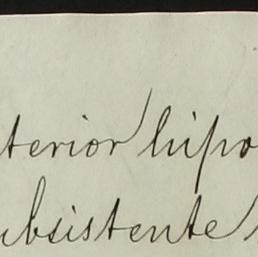 terior hipo
ubsistente